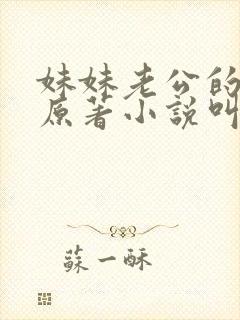 妹妹老公的
原著小說叫
蘇一酥